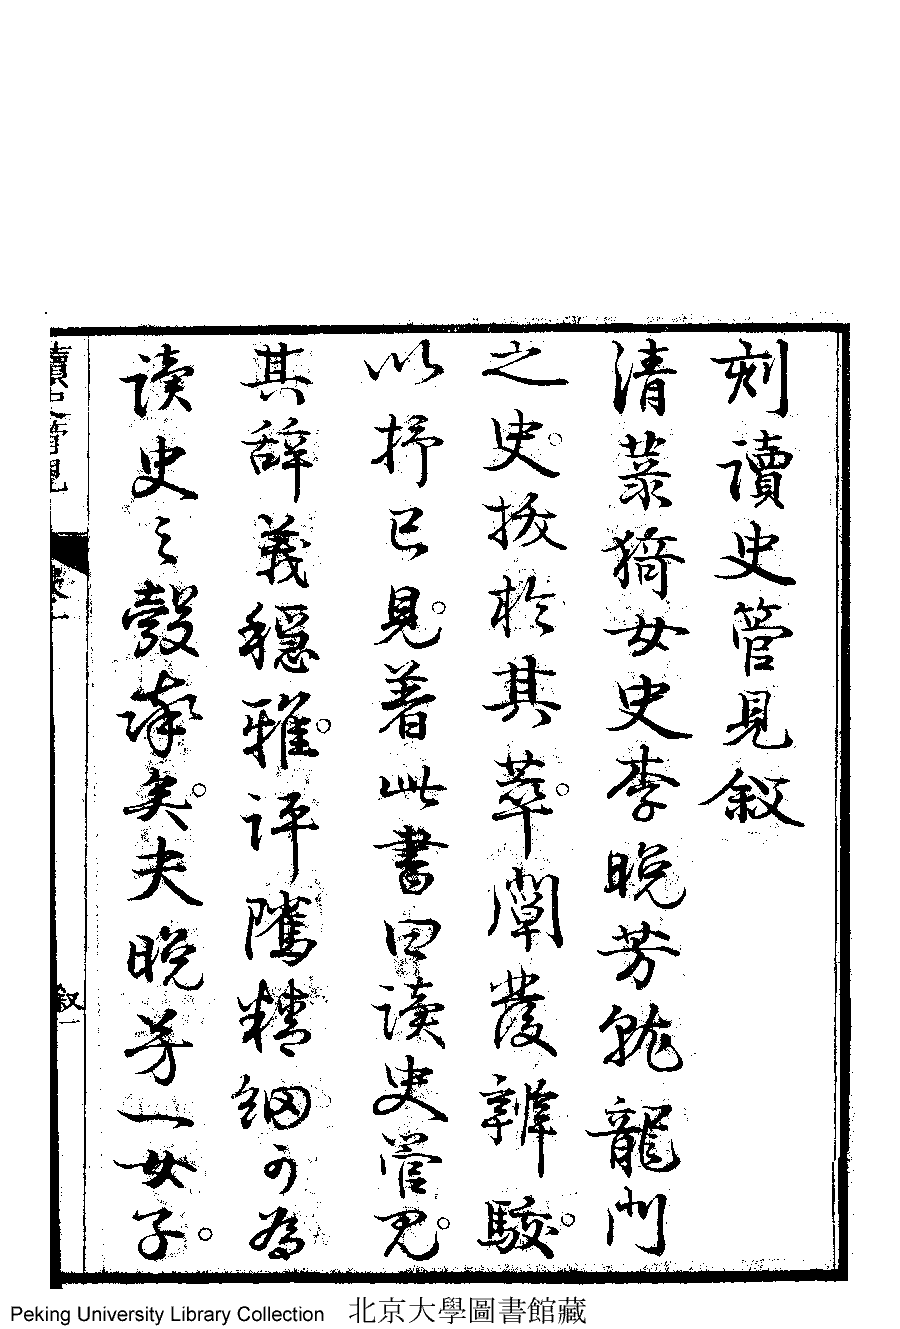 刻讀史管見叙
清蕖猗女史李晚芳就龍門
之史。拔於其萃。闡發辨駮。
以抒已見。著此書曰读史管見。
其辞義穏雅。評隲精細可為
读史之彀率矣。夫晚芳一女子。
讀史管見
卷一
叙
一
Peking University Library Collection 北京大學圖書館藏